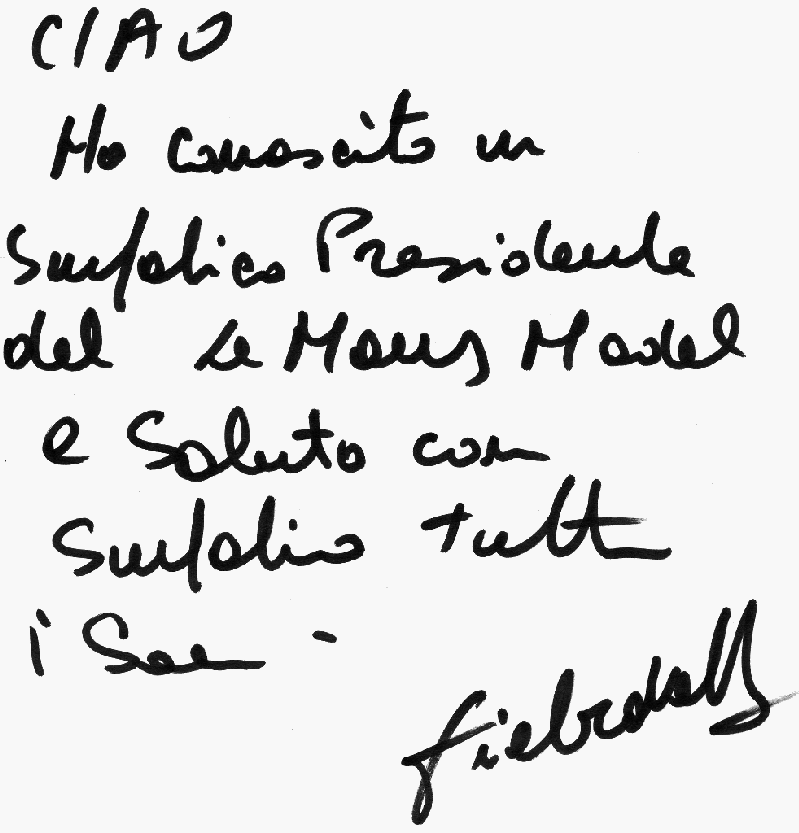 CIAO
Ho conosciuto un
Simpatico Presidente
del Le Mans Model
e Saluto con
Simpatia tutti
i Soci -